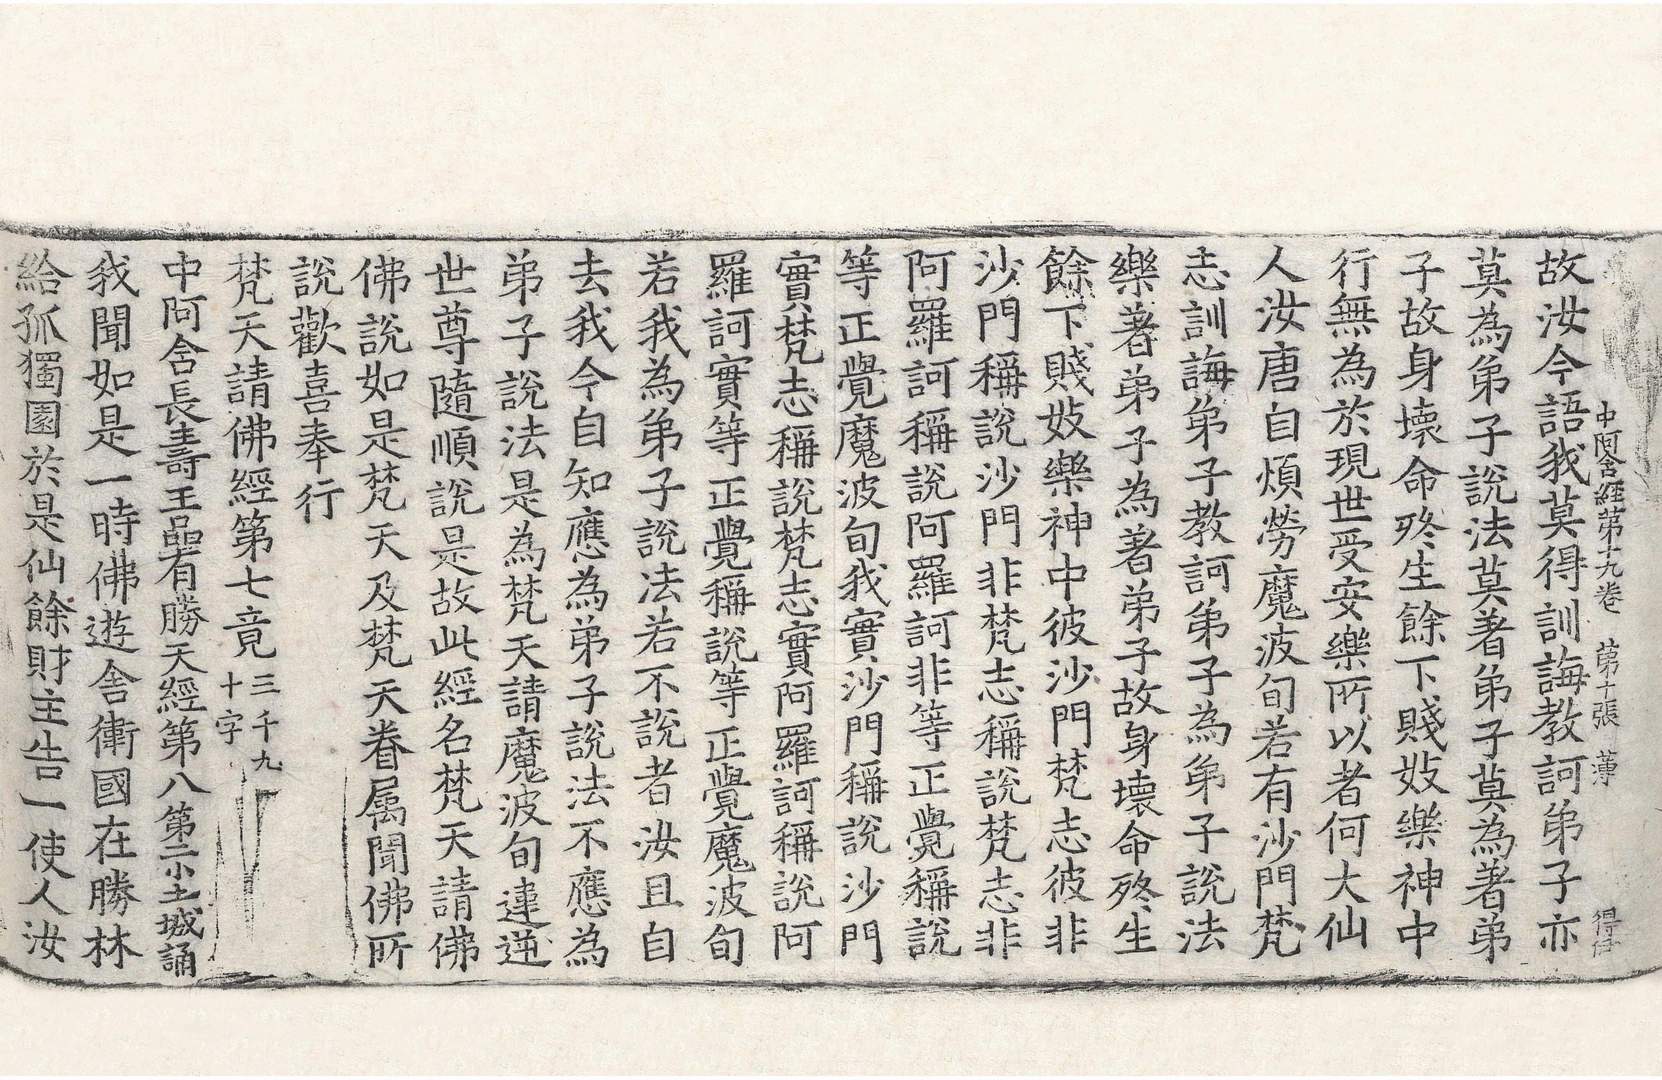 中阿含經第十九卷 第十張 薄 得
故汝今語我莫得訓誨教訶弟子亦
莫為弟子說法莫著弟子莫為著弟
子故身壞命終生餘下賤妓樂神中
行無為於現世受安樂所以者何大仙
人汝唐自煩勞魔波旬若有沙門梵
志訓誨弟子教訶弟子為弟子說法
樂著弟子為著弟子故身壞命終生
餘下賤妓樂神中彼沙門梵志彼非
沙門稱說沙門非梵志稱說梵志非
阿羅訶稱說阿羅訶非等正覺稱說
等正覺魔波旬我實沙門稱說沙門
實梵志稱說梵志實阿羅訶稱說阿
羅訶實等正覺稱說等正覺魔波旬
若我為弟子說法若不說者汝且自
去我今自知應為弟子說法不應為
弟子說法是為梵天請魔波旬違逆
世尊隨順說是故此經名梵天請佛
佛說如是梵天及梵天眷屬聞佛所
說歡喜奉行
梵天請佛經第七竟 三千九十字
中阿含長壽王品有勝天經第八 第二小土城誦
我聞如是一時佛遊舍衛國在勝林
給孤獨園於是仙餘財主告一使人汝